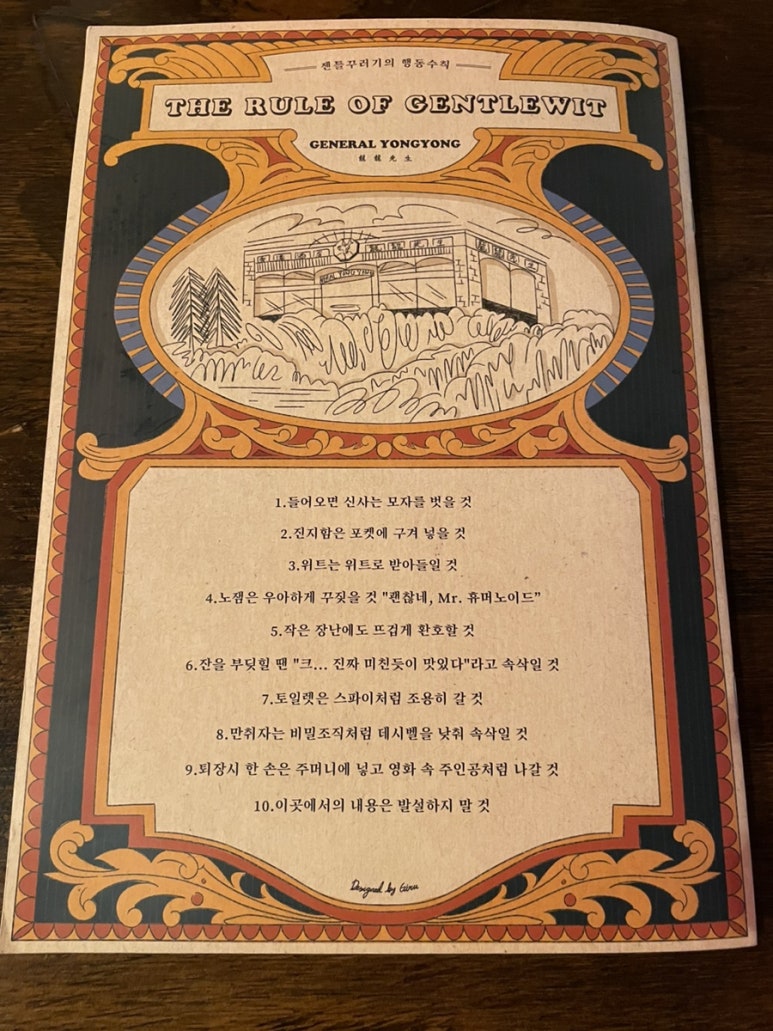 젠틀꾸러기의 행동수칙
THE RULE OF GENTLEWIT
GENERAL YONGYONG
龍龍先生
1.들어오면 신사는 모자를 벗을 것
2.진지함은 포켓에 구겨 넣을 것
3.위트는 위트로 받아들일 것
4.노잼은 우아하게 꾸짖을 것 "괜찮네, Mr. 휴머노이드"
5.작은 장난에도 뜨겁게 환호할 것
6.잔을 부딪힐 땐 "크... 진짜 미친듯이 맛있다"라고 속삭일 것
7.토일렛은 스파이처럼 조용히 갈 것
8.만취자는 비밀조직처럼 데시벨을 낮춰 속삭일 것
9.퇴장시 한 손은 주머니에 넣고 영화 속 주인공처럼 나갈 것
10.이곳에서의 내용은 발설하지 말 것
Designed by